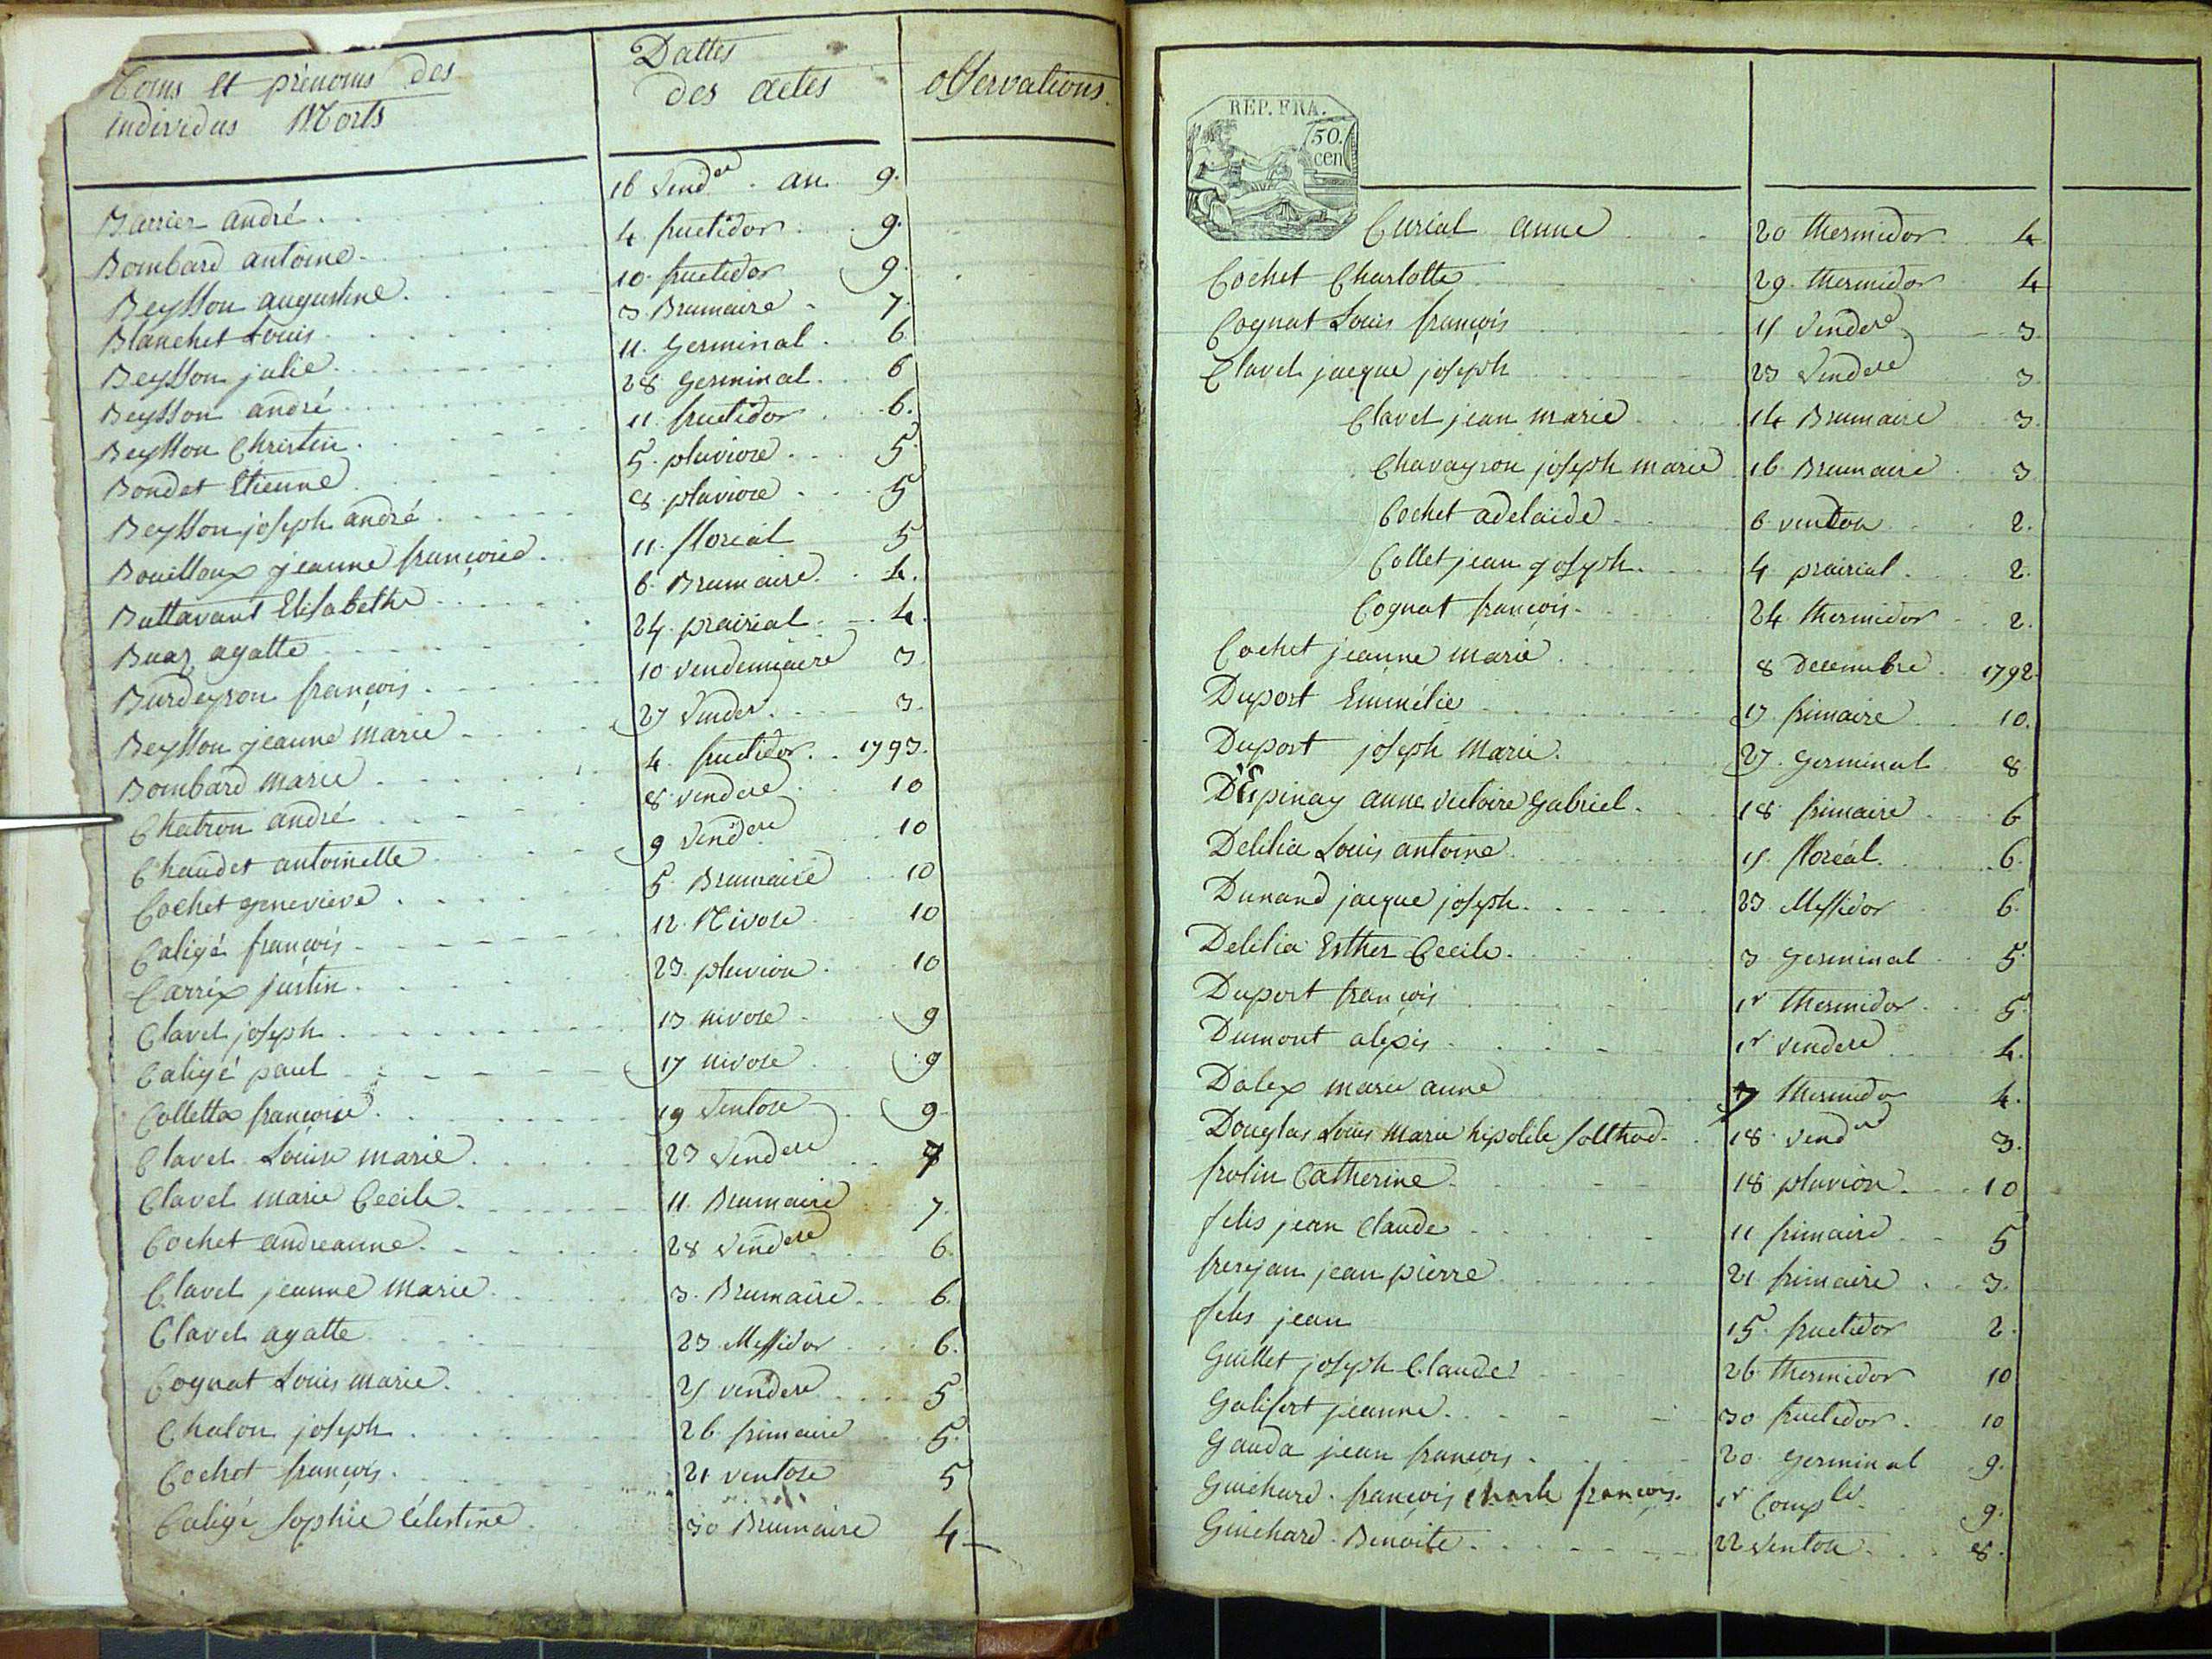 Noms et prénoms des
individus Morts
Dattes
des actes
observations
Barrier andré 16 Vend.re an 9.
Bombard antoine 4 fructidor 9.
Beysson augustine 10 fructidor 9.
Blanchet Louis 3 Brumaire 7.
Beysson julie 11 Germinal 6
Beysson andré 28 Germinal 6
Beysson Christin 11 fructidor 6.
Bondet Etienne 5 pluviose 5
Beysson joseph andré 8 pluviose 5
Bouilloux jeanne françoise 11 floréal 5
Battavant Elisabethe 6 Brumaire 4.
Buaz agatte 24 prairial 4.
Burdeyron françois 10 vendemiaire 3
Beysson jeanne marie 27 Vender 3.
Bombard marie 4 fructidor 1793.
Chatron andré 8 vendere 10
Chaudet antoinette 9 Vendere 10
Cochet genevieve 5 Brumaire 10
Caligé françois 12 Nivose 10
Carrix justin 23 pluviose 10
Clavel joseph 13 nivose 9
Caligé paul 17 nivose 9
Colletta françoise 19 Ventose 9
Clavel Louise marie 23 Vendere 7
Clavel marie Cecile 11 Brumaire 7.
Cochet andreanne 28 Vendere 6.
Clavel jeanne marie 3 Brumaire 6.
Clavel agatte 23 Messidor 6.
Cognat Louis marie 25 vendere 5
Chalon joseph 26 frimaire 5.
Cochet françois 21 ventose 5
Caligé Sophie Célestine 30 Brumaire 4
REP. FRA.
50.
cen
Curial anne 20 thermidor 4
Cochet Charlotte 29 thermidor 4
Cognat Louis françois 15 Vendere 3
Clavel jacque joseph 23 Vendere 3
Clavel jean marie 14 Brumaire 3.
Chavayron joseph marie 16 Brumaire 3
Cochet adelaïde 6 ventose 2.
Collet jean joseph 4 prairial 2.
Cognat françois 24 thermidor 2.
Cochet jeanne marie 8 Decembre 1792
Duport Emmélie 17 frimaire 10.
Duport joseph Marie 27 Germinal 8
D'Epinay anne victoire Gabriel 18 frimaire 6
Delilia Louis antoine 15 floréal 6.
Dunand jacque joseph 23 Messidor 6.
Delilia Esther Cecile 3 Germinal 5.
Duport françois 1r thermidor 5.
Dumont alexis 1r vendere 4.
Dalex marie anne 7 thermidor 4.
Douglas Louis Marie hipolite 18 vend.re 3.
frolin Catherine 18 pluviose 10
felis jean Claude 11 frimaire 5
frerejan jean pierre 21 frimaire 3.
felis jean 15 fructidor 2.
Guillet joseph Claude 26 thermidor 10
Galifert jeanne 30 fructidor 10
Gauda jean françois 20 Germinal 9.
Guichard françois Charle françois 1r Comp.le 9.
Guichard Benoite 22 Ventose 8.